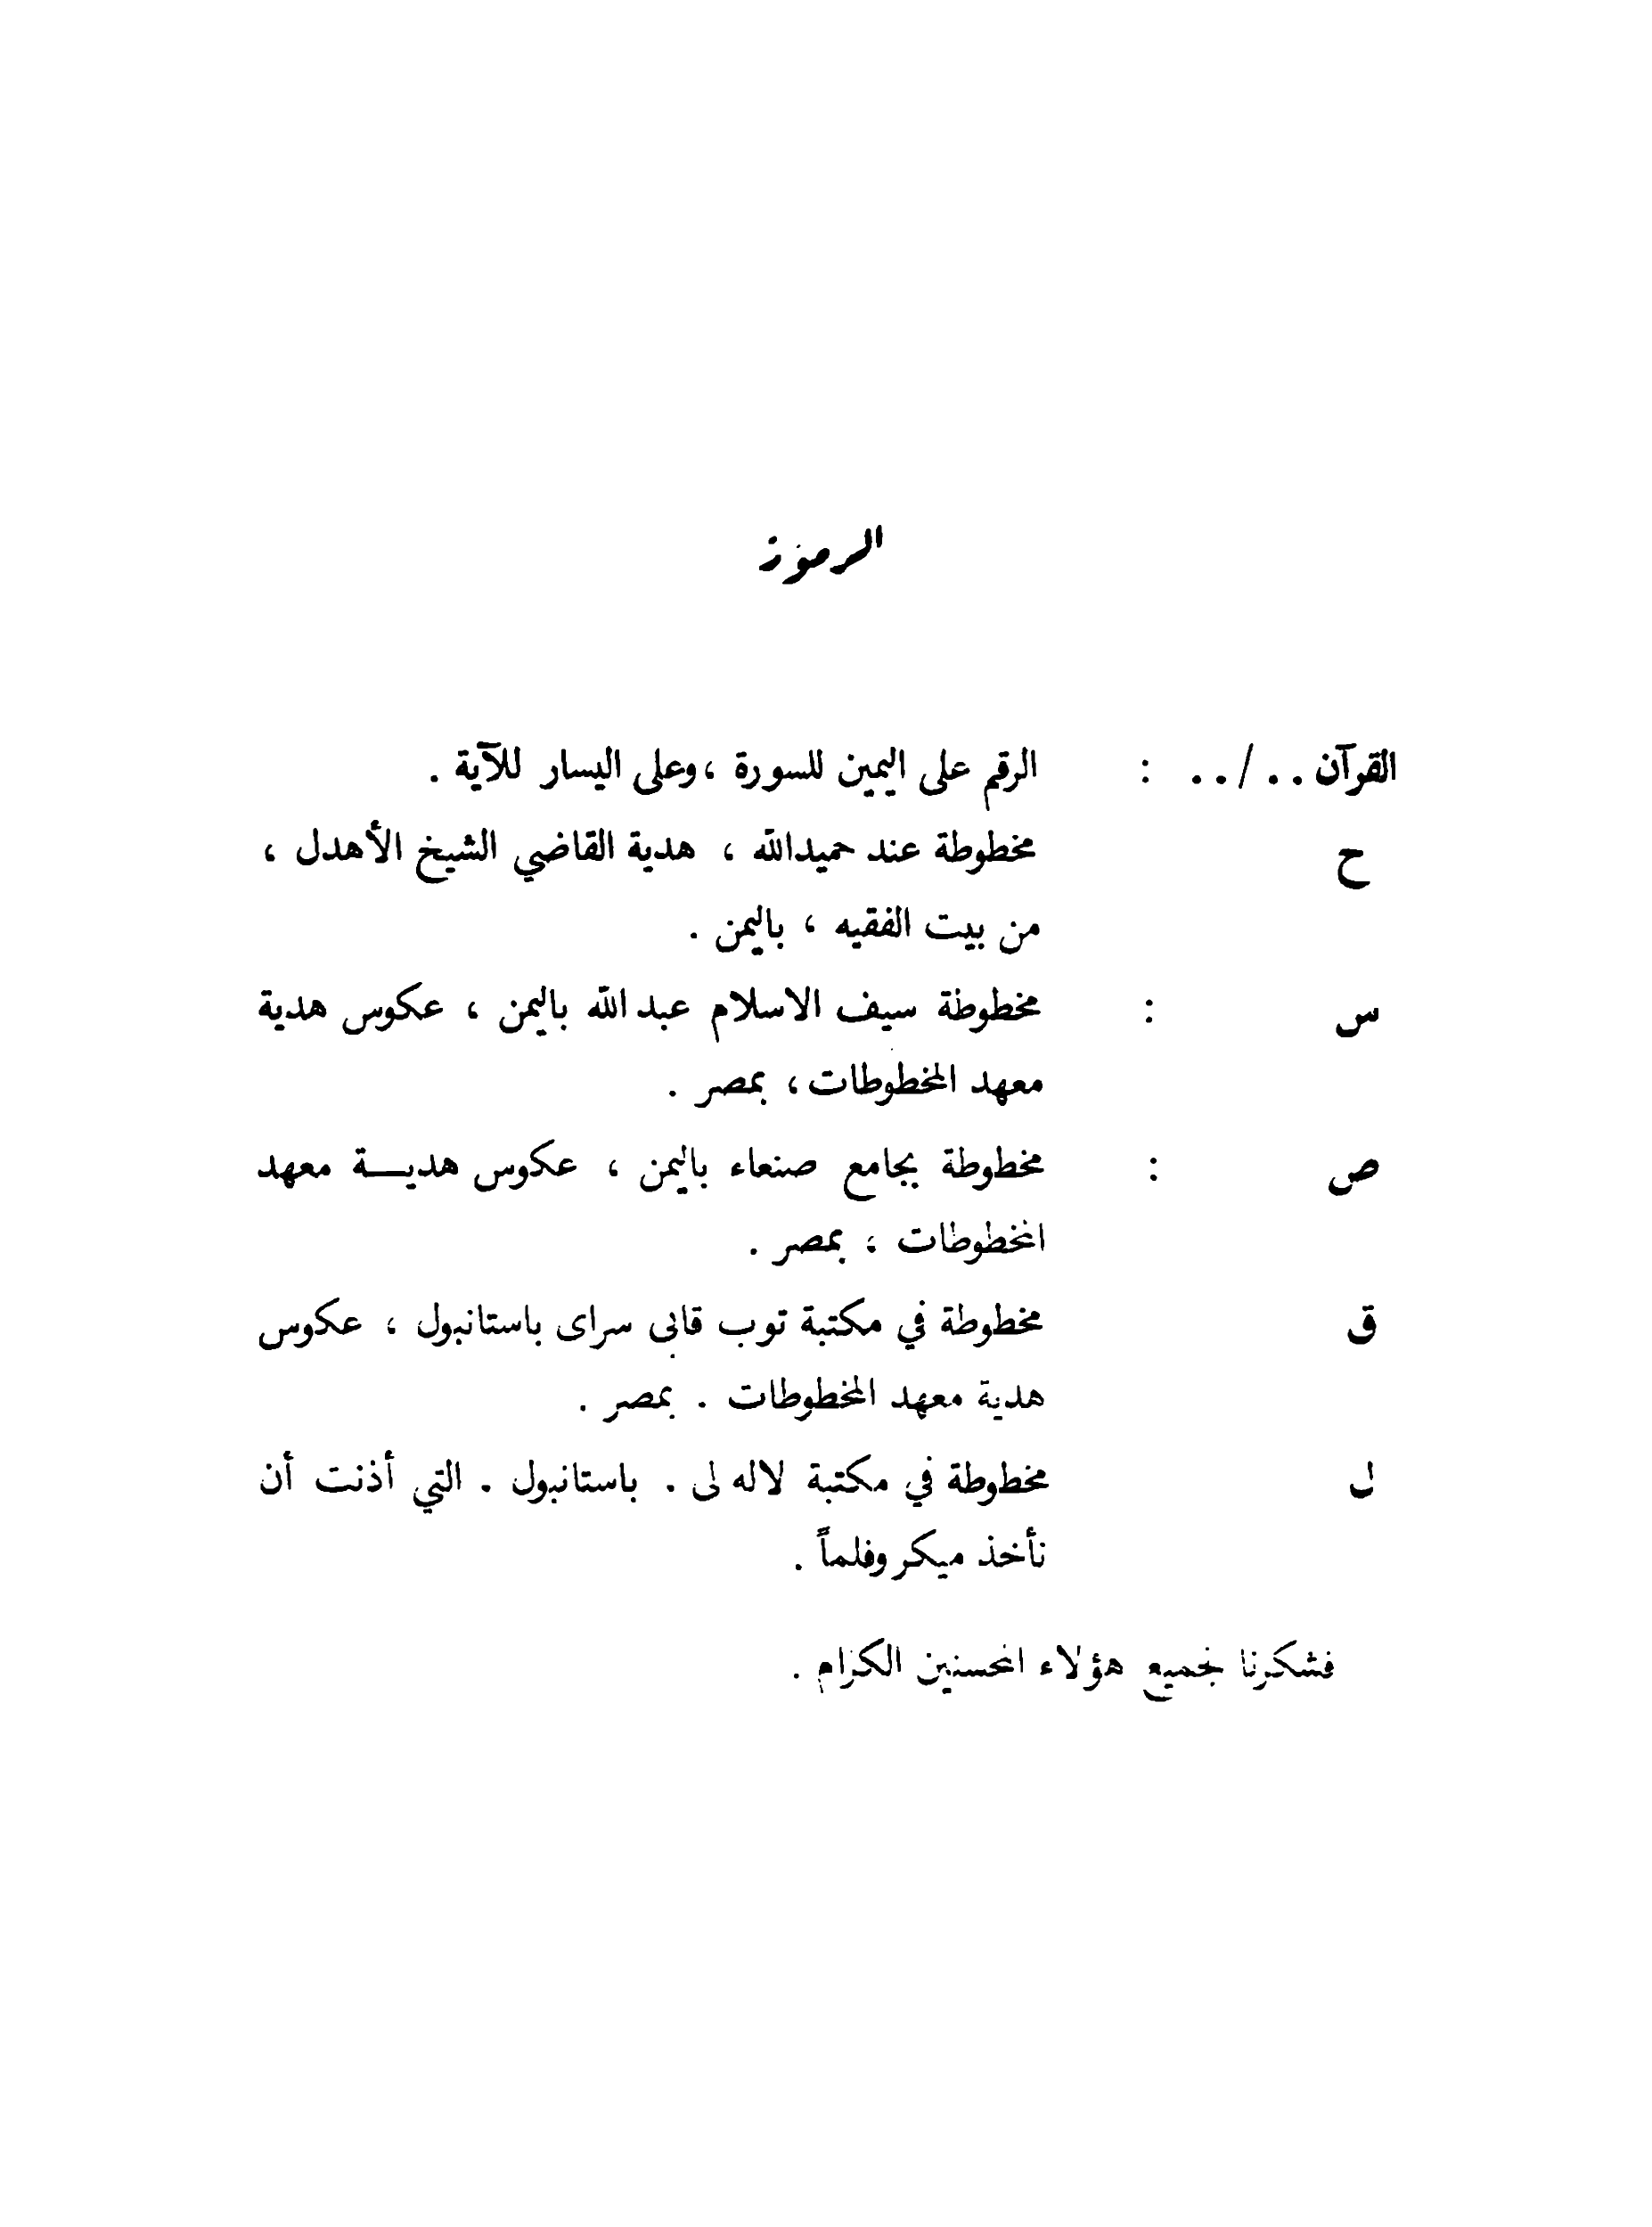 الرموز
القرآن . . / . . : الرقم على اليمين للسورة ، وعلى اليسار للآية .
ح مخطوطة عند حميدالله ، هدية القاضي الشيخ الأهدل ،
من بيت الفقيه ، باليمن .
س : مخطوطة سيف الاسلام عبد الله باليمن ، عكوس هدية
معهد المخطوطات ، بمصر .
ص : مخطوطة بجامع صنعاء باليمن ، عكوس هديـة معهد
المخطوطات ، بمصر .
ق مخطوطة في مكتبة توب قابى سراى باستانبول ، عكوس
هدية معهد المخطوطات . بمصر .
ل مخطوطة في مكتبة لاله لى . باستانبول . التي أذنت أن
نأخذ ميكروفلماً .
فشكرنا لجميع هؤلاء المحسنين الكرام .